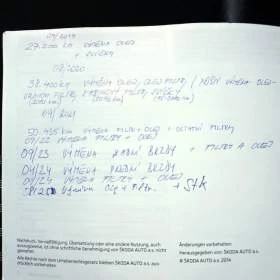 09/2019
27.200 km VÝMĚNA OLEJ
+ SVÍČKY
02/2020
38.400 km VÝMĚNA OLEJ, OLEJ FILTR / VÝMĚNA OLEJ
04/2021
50.455 km VÝMĚNA FILTRY OLEJ + OSTATNÍ FILTRY
09/22 VÝMĚNA FILTRY + OLEJ
09/23 VÝMĚNA ZADNÍ BRZDY + FILTR A OLEJ
04/24 VÝMĚNA PŘEDNÍ BRZDY
09/24 VÝMĚNA FILTR + OLEJ
Výměna Olej + Filtr. + STK
Nachdruck, Vervielfältigung, Übersetzung oder eine andere Nutzung, auch
auszugsweise, ist ohne schriftliche Genehmigung von ŠKODA AUTO a.s. nicht
gestattet.
Alle Rechte nach dem Urheberrechtsgesetz bleiben ŠKODA AUTO a.s. aus-
drücklich vorbehalten.
Änderungen vorbehalten.
Herausgegeben von: ŠKODA AUTO a.s.
© ŠKODA AUTO a.s. 2014